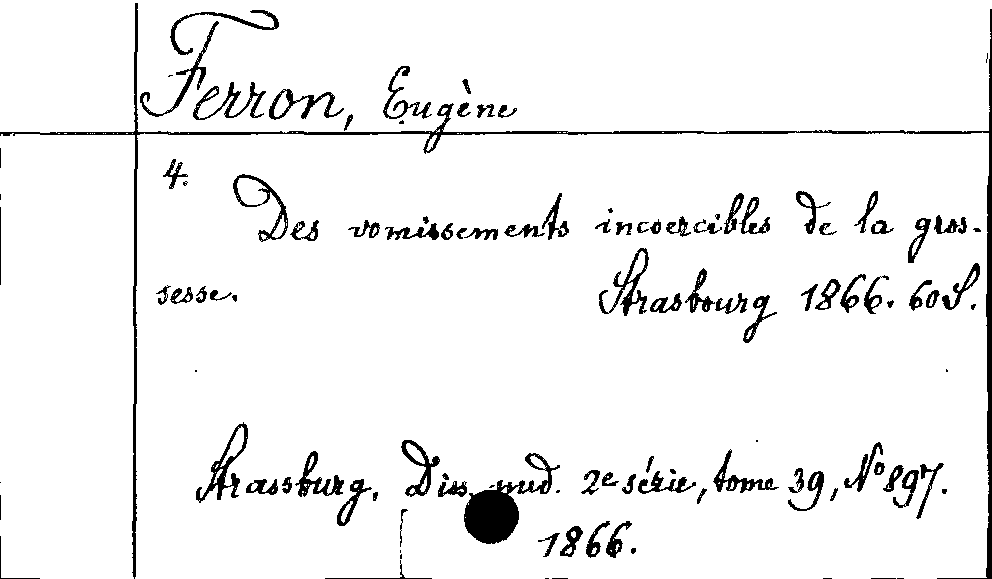 Ferron, Eugène
4.
Des vomissements incoercibles de la gros-
sesse. Strasbourg 1866. 60 S.
Strassburg, Diss. med. 2e série, tome 39, No 897.
1866.